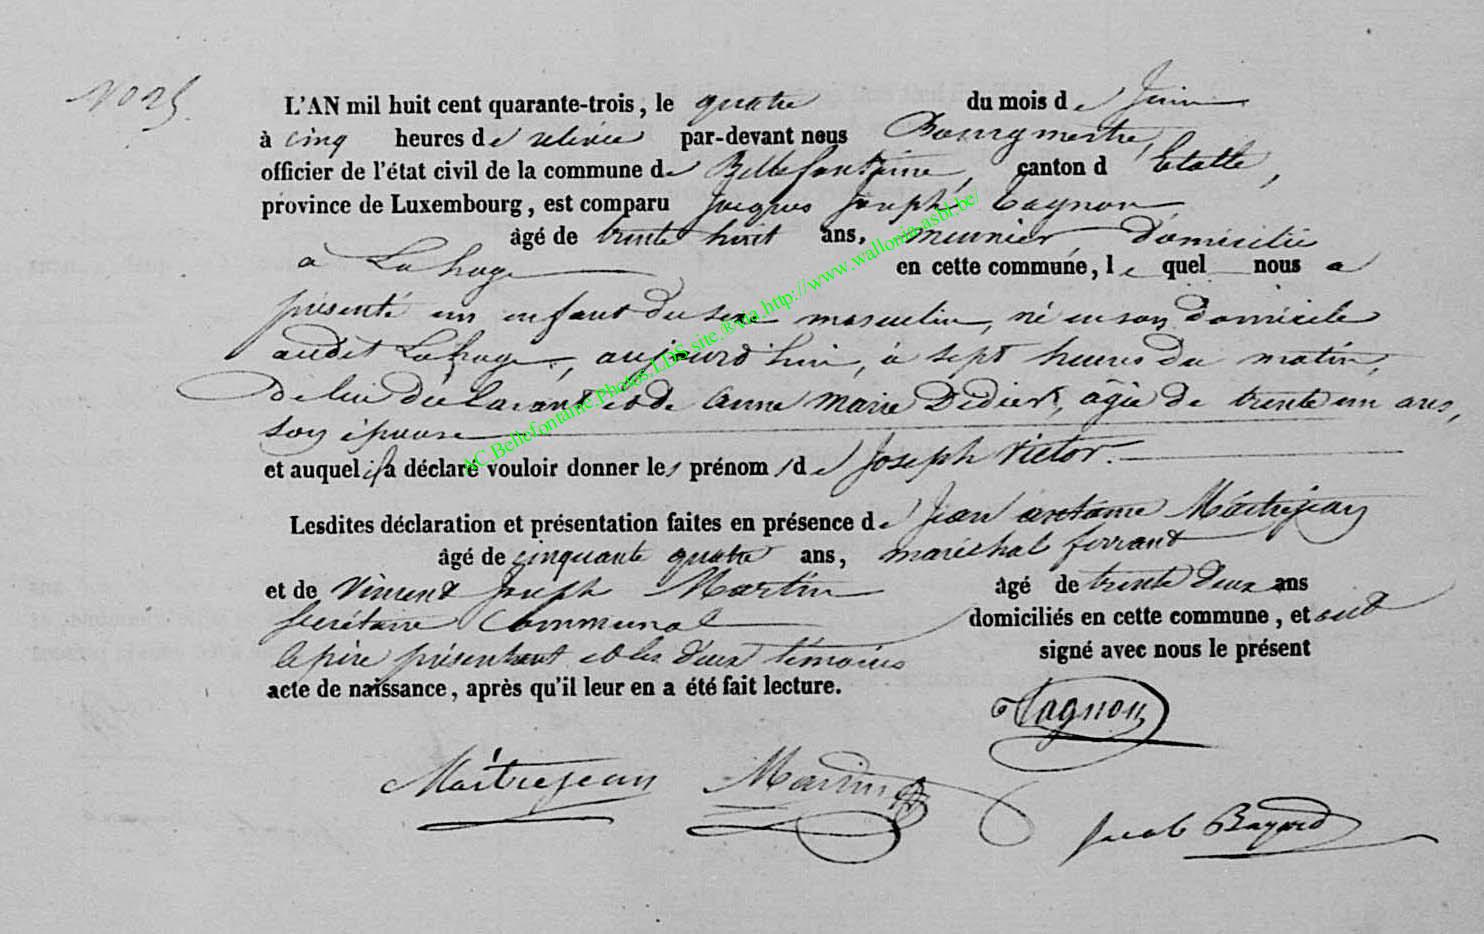 No 25
L'AN mil huit cent quarante-trois, le quatre du mois de Juin
à cinq heures de relevée par-devant nous Bourgmestre,
officier de l'état civil de la commune de Bellefontaine, canton d Etalle,
province de Luxembourg, est comparu Jacques Joseph Tagnon
âgé de trente huit ans, meunier, domicilié
a Lahage en cette commune, le quel nous a
présenté un enfant du sexe masculin, né en son domicile
audit Lahage, aujourd'hui, à sept heures du matin,
de lui déclarant et de Anne Marie Didier, âgée de trente un ans,
son épouse
et auquel il a déclaré vouloir donner les prénoms de Joseph Victor.
Lesdites déclaration et présentation faites en présence de Jean antoine Maitrejean
âgé de cinquante quatre ans, maréchal ferrant
et de Vincent Joseph Martin âgé de trente deux ans
Secrétaire Communal domiciliés en cette commune, et ont
le père présentant et les deux témoins signé avec nous le présent
acte de naissance, après qu'il leur en a été fait lecture.
Tagnon
Maitrejean Martin
Jacob Bayard
AC.Bellefontaine.Photos.LDS.site.®via.http://www.wallonia-asbl.be/